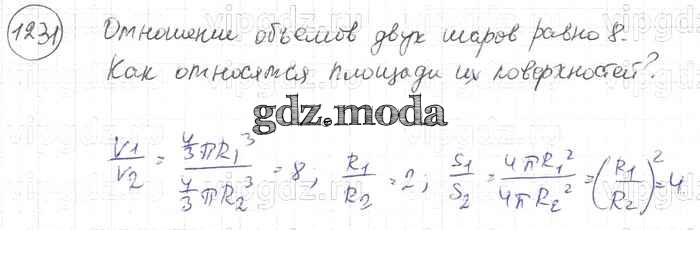 1231 Отношение объемов двух шаров равно 8.
Как относятся площади их поверхностей?
gdz.moda
V1/V2 = (4/3 πR₁³)/(4/3 πR₂³) = 8; R1/R2 = 2; S1/S2 = 4πR₁²/4πR₂² = (R1/R2)² = 4